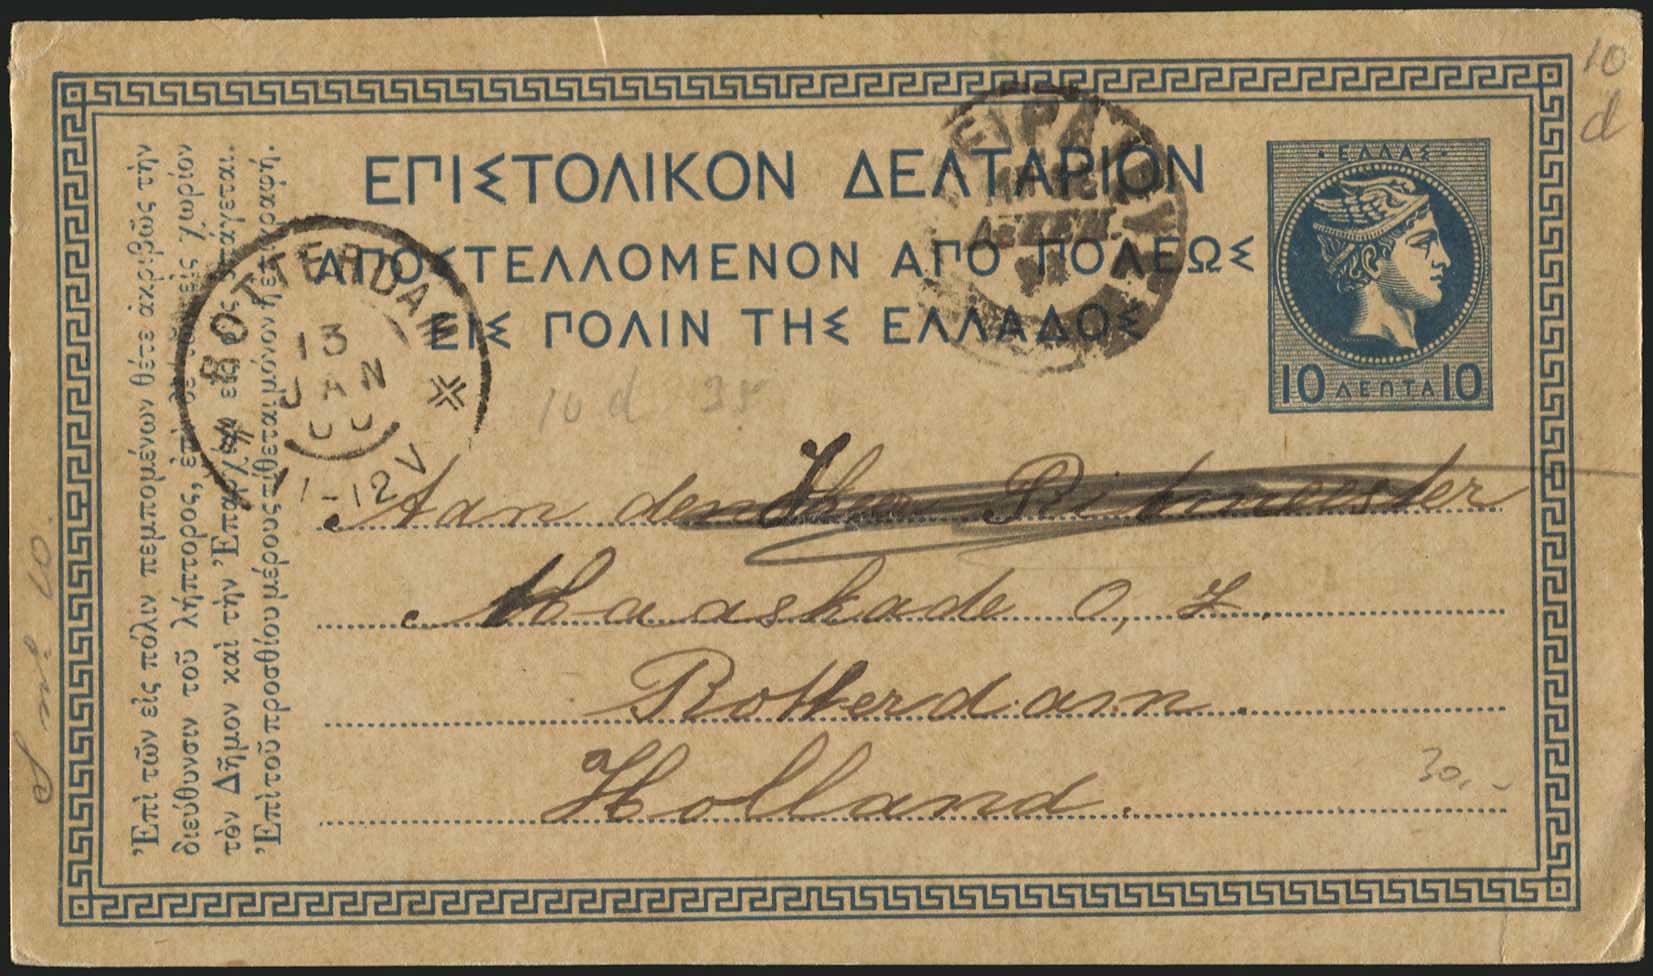 ΕΠΙΣΤΟΛΙΚΟΝ ΔΕΛΤΑΡΙΟΝ
ΑΠΟΣΤΕΛΛΟΜΕΝΟΝ ΑΠΟ ΠΟΛΕΩΣ
ΕΙΣ ΠΟΛΙΝ ΤΗΣ ΕΛΛΑΔΟΣ
ΕΛΛΑΣ
10 ΛΕΠΤΑ 10
ROTTERDAM
13
JAN
00
11-12V
ΠΕΙΡΑΙΕΥΣ
10
d
10 d
Aan den Ritmeester
Maaskade O, Z.
Rotterdam.
Holland.
30,-
Ἐπὶ τῶν εἰς πόλιν πεμπομένων θέτε ἀκριβῶς τὴν
διεύθυνσιν τοῦ λήπτορος, ἐπὶ δὲ τῶν εἰς χωρίον
τὸν Δῆμον καὶ τὴν Ἐπαρχίαν εἰς ὃ ὑπάγεται.
Ἐπὶ τοῦ προσθίου μέρους τίθεται μόνον ἡ ἐπιγραφή.